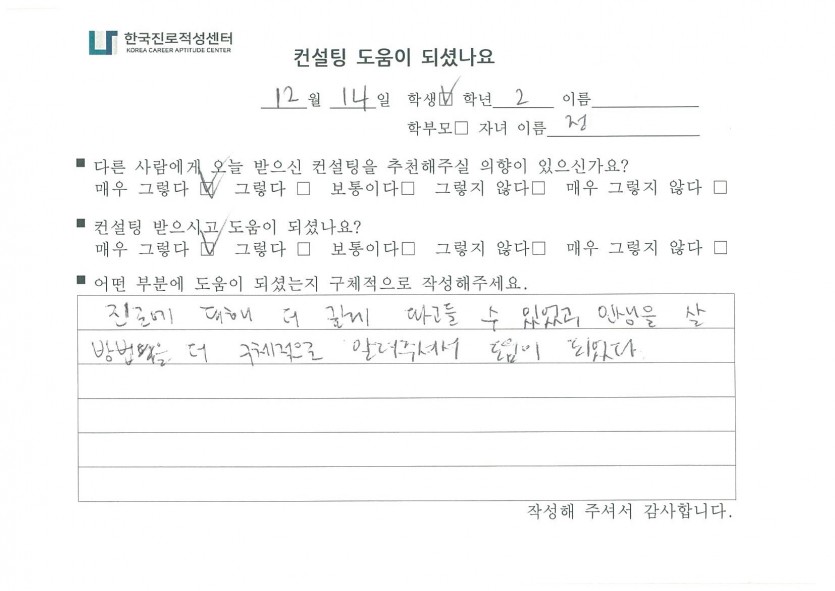 한국진로적성센터
KOREA CAREER APTITUDE CENTER
컨설팅 도움이 되셨나요
12월 14일 학생☑ 학년 2 이름
학부모□ 자녀 이름 정
■ 다른 사람에게 오늘 받으신 컨설팅을 추천해주실 의향이 있으신가요?
매우 그렇다 ☑ 그렇다 □ 보통이다□ 그렇지 않다□ 매우 그렇지 않다 □
■ 컨설팅 받으시고 도움이 되셨나요?
매우 그렇다 ☑ 그렇다 □ 보통이다□ 그렇지 않다□ 매우 그렇지 않다 □
■ 어떤 부분에 도움이 되셨는지 구체적으로 작성해주세요.
진로에 대해 더 깊게 파고들 수 있었고 인생을 살
방법을 더 구체적으로 알려주셔서 도움이 되었다
작성해 주셔서 감사합니다.